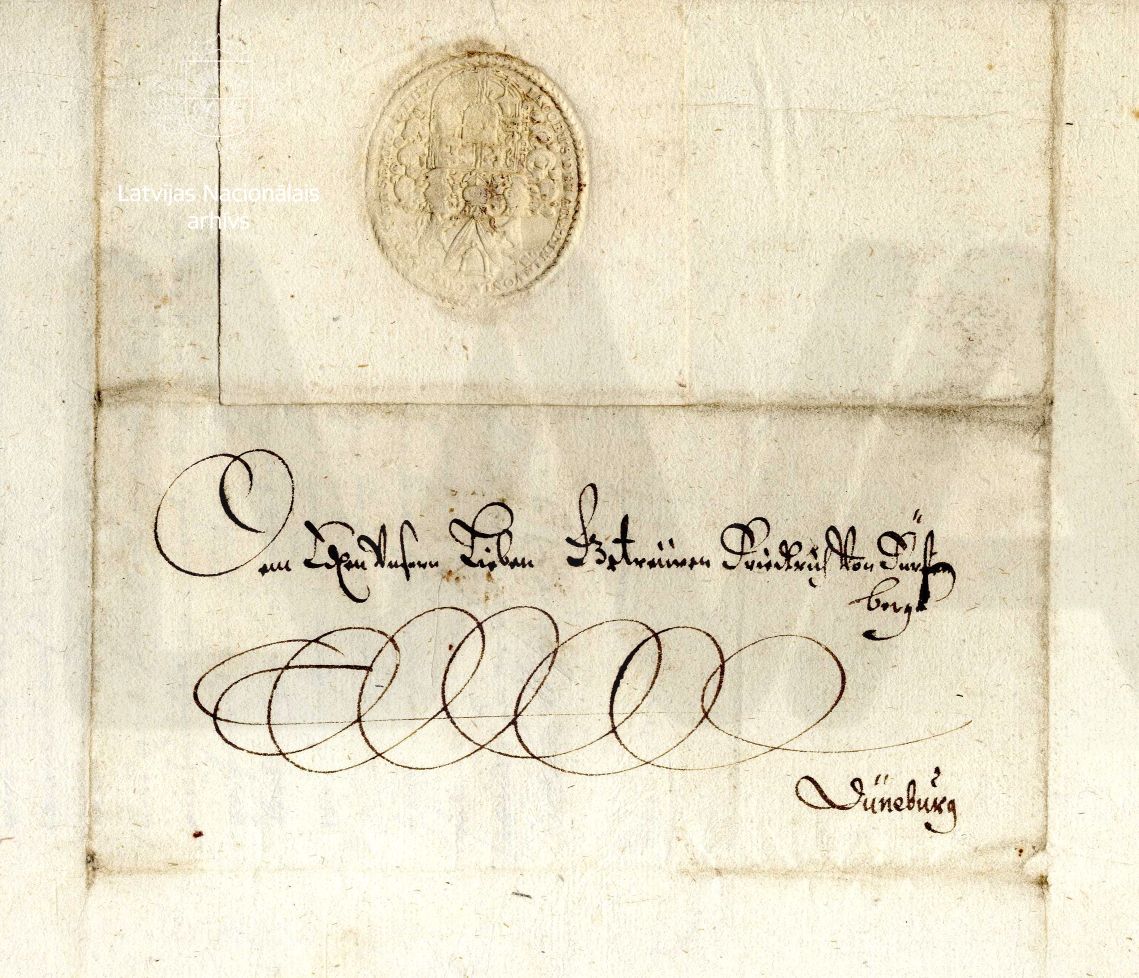 Latvijas Nacionālais
arhīvs
IACOBUS
Dem Edlen Unsern Lieben Getreuwen Friedrich Von Fürsten
berge
Düneburg